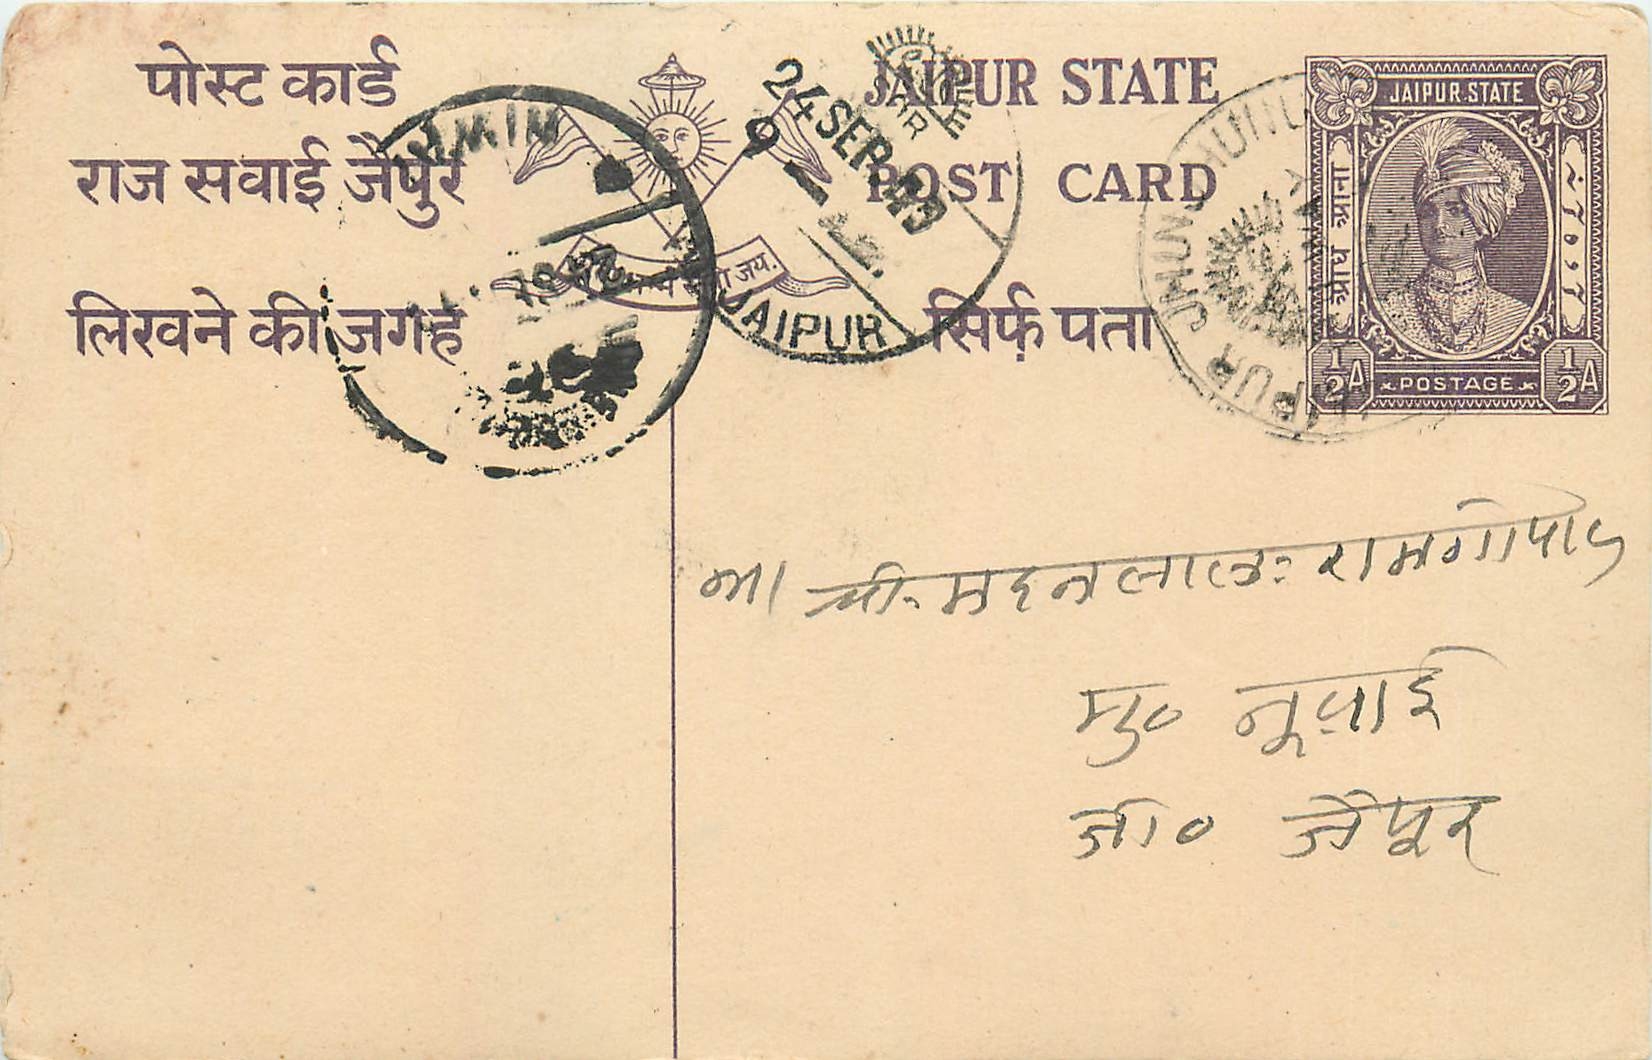 पोस्ट कार्ड
राज सवाई जैपुर
लिखने की जगह
JAIPUR STATE
POST CARD
सिर्फ़ पता
24 SEP 43
9 -
JAIPUR
JAIPUR
JAIPUR STATE
पाव आना
POSTAGE
1/2 A
1/2 A
श्री. मदनलाल: रामगोपाल
मु०
जी० जैपूर